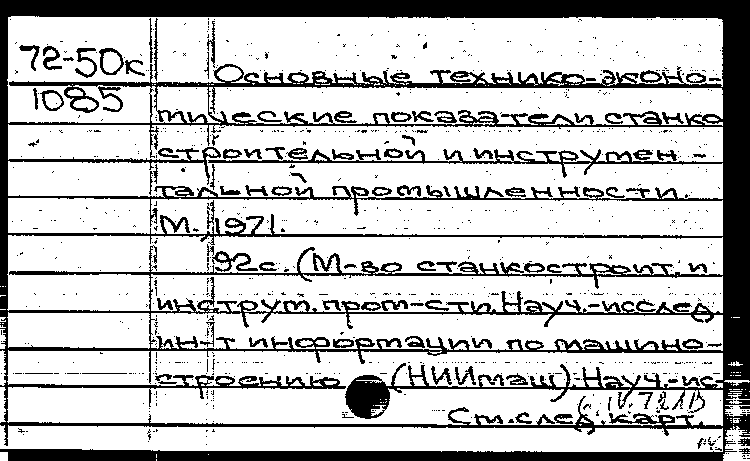 72-50к
1085
Основные технико-эконо-
мические показатели станко
строительной и инструмен-
тальной промышленности.
М., 1971.
92с. (М-во станкостроит. и
инструм. пром-сти. Науч.-исслед.
ин-т информации по машино-
строению (НИИмаш). Науч.-ис-
См. след. карт.